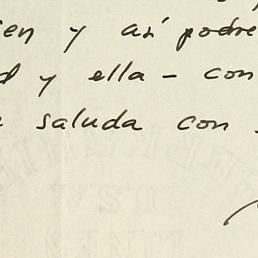 y así podre
y ella – con
saluda con